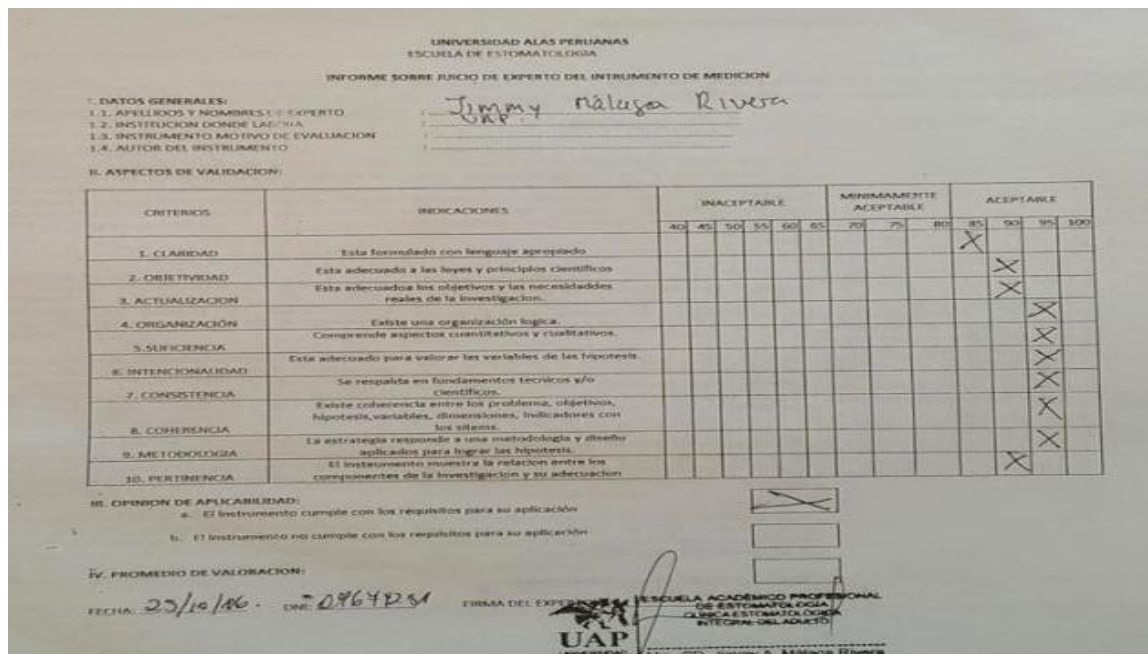 UNIVERSIDAD ALAS PERUANAS
ESCUELA DE ESTOMATOLOGIA
INFORME SOBRE JUICIO DE EXPERTO DEL INTRUMENTO DE MEDICION
I. DATOS GENERALES:
1.1. APELLIDOS Y NOMBRES DE EXPERTO : Jimmy Málaga Rivera
1.2. INSTITUCION DONDE LABORIA : UAP.
1.3. INSTRUMENTO MOTIVO DE EVALUACION :
1.4. AUTOR DEL INSTRUMENTO :
II. ASPECTOS DE VALIDACION:
CRITERIOS INDICACIONES INACEPTABLE MINIMAMENTE ACEPTABLE ACEPTABLE
40 45 50 55 60 65 70 75 80 85 90 95 100
1. CLARIDAD Esta formulado con lenguaje apropiado X
2. OBJETIVIDAD Esta adecuado a las leyes y principios cientificos X
3. ACTUALIZACION Esta adecuadoa los objetivos y las necesidaddes reales de la investigacion. X
4. ORGANIZACIÓN Existe una organización logica. X
5.SUFICIENCIA Comprende aspectos cuantitativos y cualitativos. X
6. INTENCIONALIDAD Esta adecuado para valorar las variables de las hipotesis. X
7. CONSISTENCIA Se respalda en fundamentos tecnicos y/o cientificos. X
8. COHERENCIA Existe coherencia entre los problema, objetivos, hipotesis,variables, dimensiones, indicadores con los sitems. X
9. METODOLOGIA La estrategia responde a una metodologia y diseño aplicados para lograr las hipotesis. X
10. PERTINENCIA El instrumento muestra la relacion entre los componentes de la investigacion y su adecuacion X
III. OPINION DE APLICABILIDAD:
a. El instrumento cumple con los requisitos para su aplicación X
b. El instrumento no cumple con los requisitos para su aplicación
IV. PROMEDIO DE VALORACION:
FECHA: DNI: FIRMA DEL
ESCUELA ACADÉMICO PROFESIONAL
DE ESTOMATOLOGIA
CLINICA ESTOMATOLOGICA
INTEGRAL DEL ADULTO
UAP
UNIVERSIDAD
CD. Jimmy A. Málaga Rivera